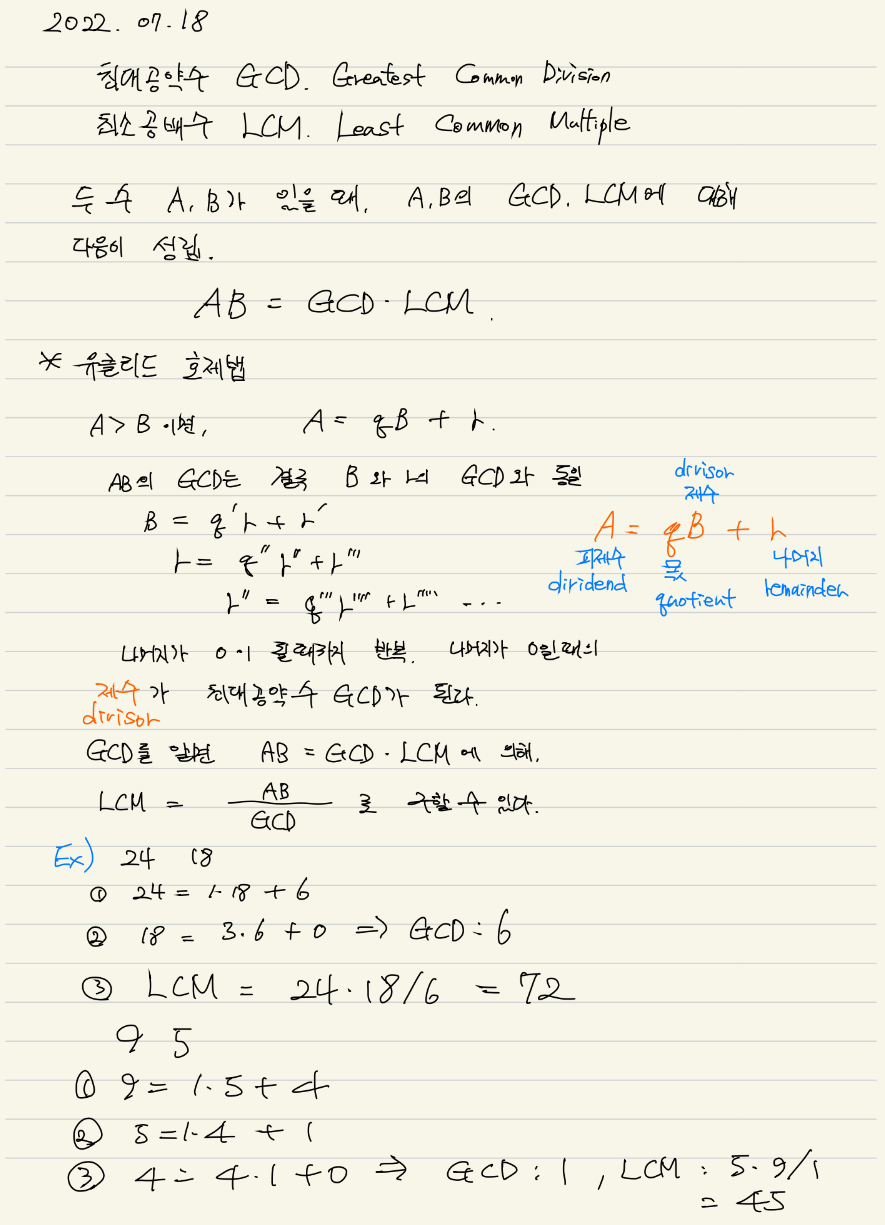 2022. 07. 18
최대공약수 GCD. Greatest Common Division
최소공배수 LCM. Least Common Multiple
두 수 A, B가 있을 때, A,B의 GCD, LCM에 대해
다음이 성립.
AB = GCD · LCM.
* 유클리드 호제법
A > B 이면, A = qB + r.
AB의 GCD는 결국 B와 r의 GCD와 동일
B = q'r + r'
r = q''r'' + r'''
r'' = q'''r'''' + r''''' ...
divisor
제수
A = qB + r
피제수 몫 나머지
dividend quotient remainder
나머지가 0이 될때까지 반복. 나머지가 0일때의
제수가 최대공약수 GCD가 된다.
divisor
GCD를 알면 AB = GCD · LCM에 의해,
LCM = AB / GCD 로 구할 수 있다.
Ex) 24 18
① 24 = 1·18 + 6
② 18 = 3·6 + 0 => GCD : 6
③ LCM = 24·18/6 = 72
9 5
① 9 = 1·5 + 4
② 5 = 1·4 + 1
③ 4 = 4·1 + 0 => GCD : 1 , LCM : 5·9/1
= 45